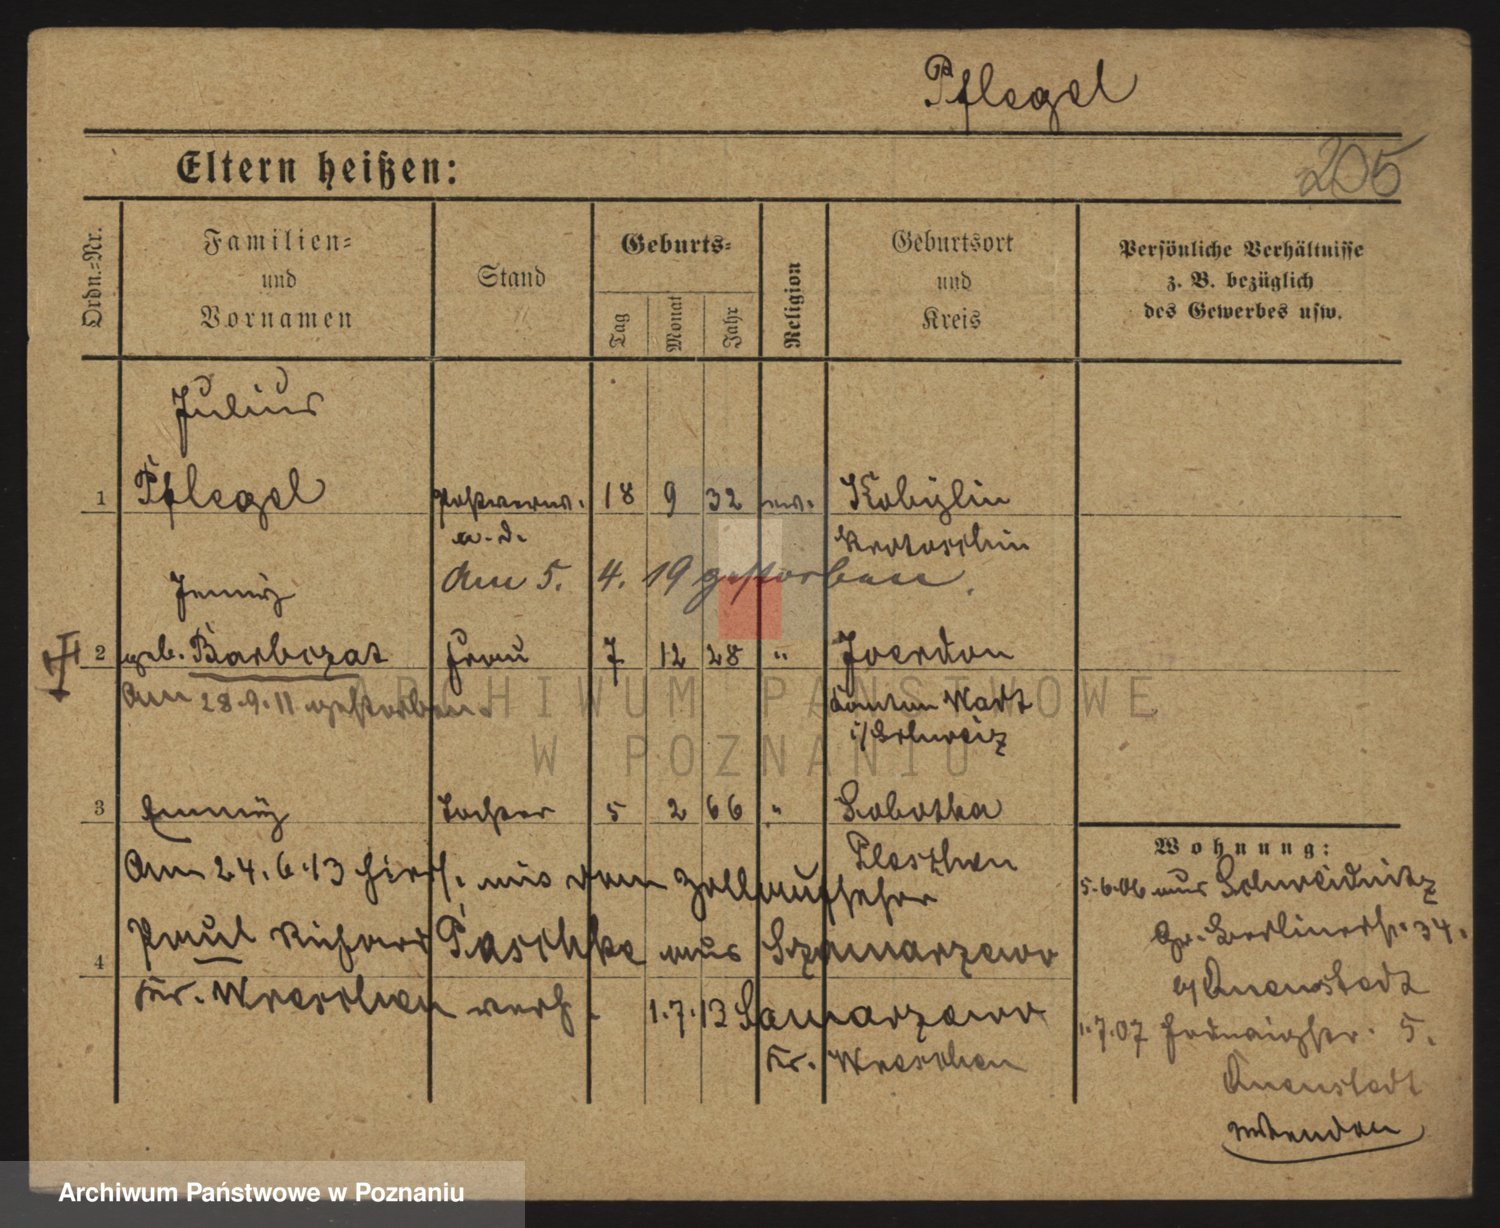 Pflegel
Eltern heißen:
205
Ordn.-Nr.
Familien-
und
Vornamen
Stand
Geburts-
Tag
Monat
Jahr
Religion
Geburtsort
und
Kreis
Persönliche Verhältnisse
z. B. bezüglich
des Gewerbes usw.
Julius
1 Pflegel Postverw. 18 9 32 ev. Kobylin
a. D. Krotoschin
Am 5. 4. 19 gestorben.
Jenny
2 geb. Barbezat Frau 7 12 28 " Iverdon
Am 28.9.11 gestorben.
Kanton Wadt
i/Schweiz
3 Emmy Tochter 5 2 66 " Sobotka
Pleschen
Am 24.6.13 hier mit dem Zollaufseher
Paul Richard Paschke aus Szamarzewo
4
Kr. Wreschen verh. 1.7.13 Samarzewo
Kr. Wreschen
Wohnung:
5.6.06 aus Schweidnitz
Gr. Berlinerstr. 34.
1.7.07 5.
ARCHIWUM PAŃSTWOWE
W POZNANIU
Archiwum Państwowe w Poznaniu